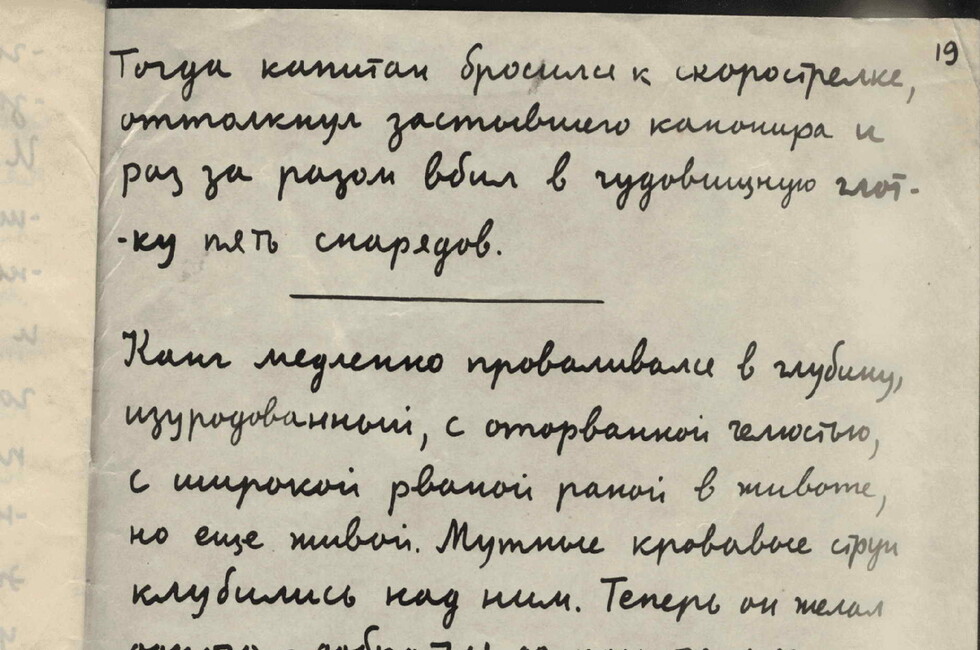 19
Тогда капитан бросился к скорострелке,
оттолкнул застывшего канонира и
раз за разом вбил в чудовищную глот-
-ку пять снарядов.
Канг медленно проваливался в глубину,
изуродованный, с оторванной челюстью,
с широкой рваной раной в животе,
но еще живой. Мутные кровавые струи
клубились над ним. Теперь он желал